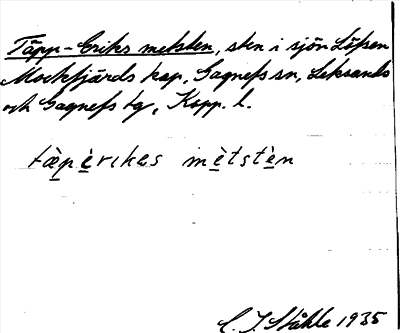 Täpp-Eriks metsten, sten i sjön Löpsen
Mockfjärds kap, Gagnefs sn, Leksands
och Gagnefs tg, Kopp. l.
tæ̀pèrɩkəs mètstèn
C. I. Ståhle 1935